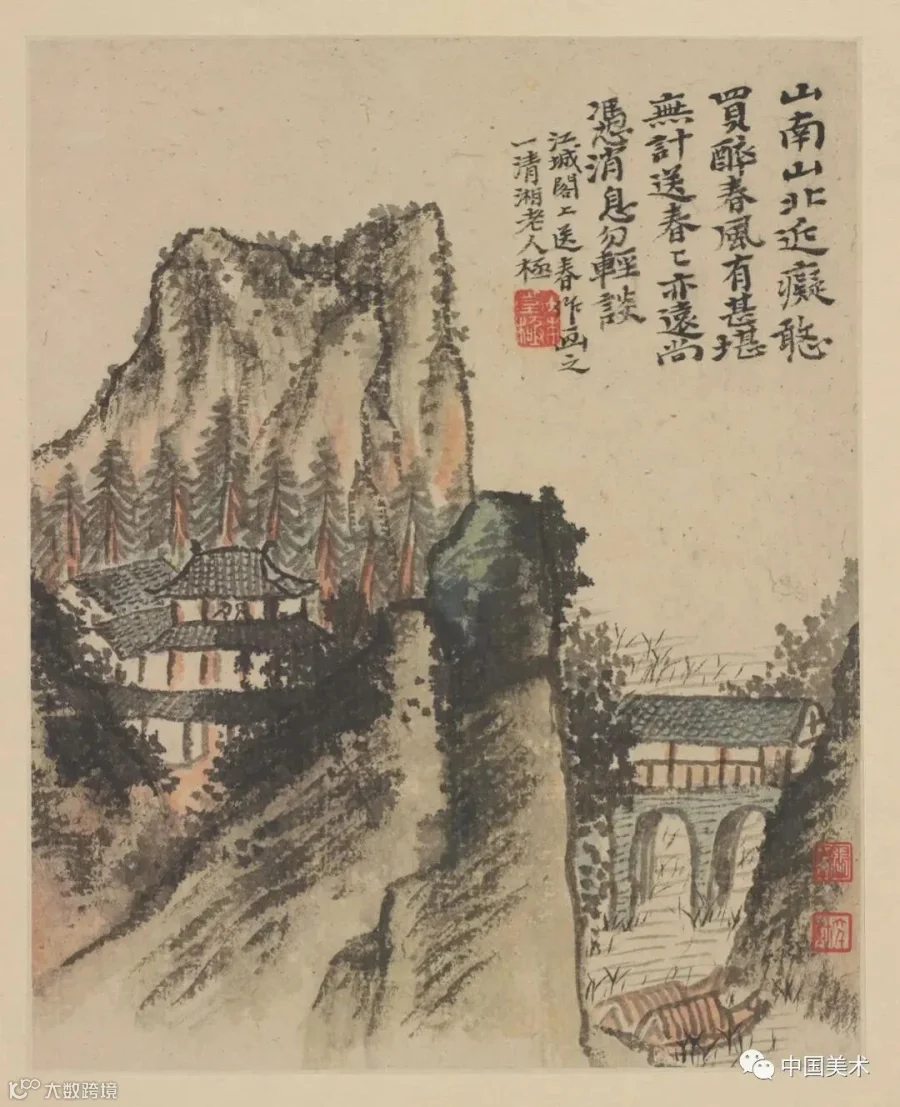 山南山北近癡憨
買醉春風有甚堪
無計送春〻亦遠尚
憑消息勿輕談
江城閣上送春作画之
一清湘老人極
中国美术
大数跨境